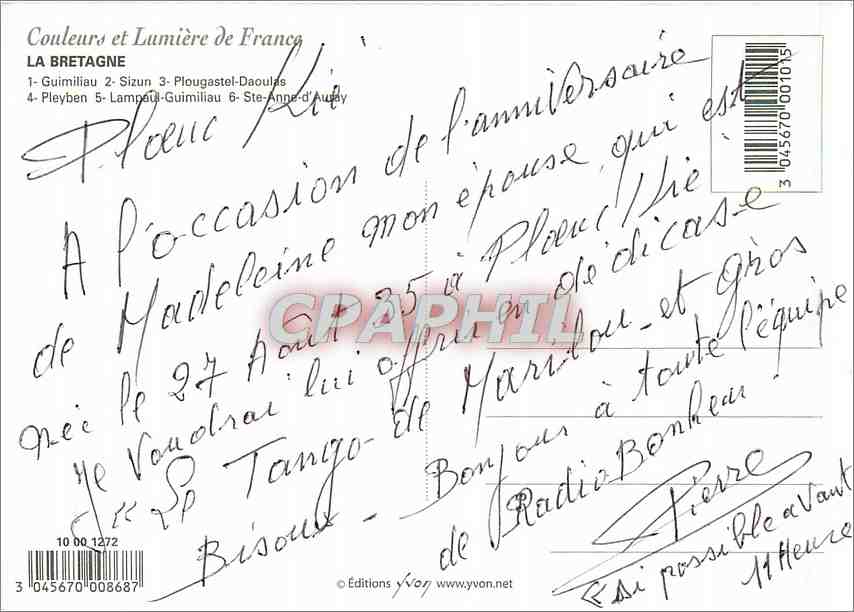 Couleurs et Lumière de France
LA BRETAGNE
1- Guimiliau 2- Sizun 3- Plougastel-Daoulas
4- Pleyben 5- Lampaul-Guimiliau 6- Ste-Anne-d'Auray
Ploeuc
A l'occasion de l'anniversaire
de Madeleine mon épouse qui est
née le 27 Août 35 à Ploeuc
Je Voudrai lui offrir en dédicase
« Le Tango de Marilou et gros
Bisoux - Bonjour à toute l'équipe
de Radio Bonheur.
Pierre
« si possible avant
11 Heure
3 045670 001015
CPAPHIL
10 00 1272
3 045670 008687
© Éditions yvon www.yvon.net